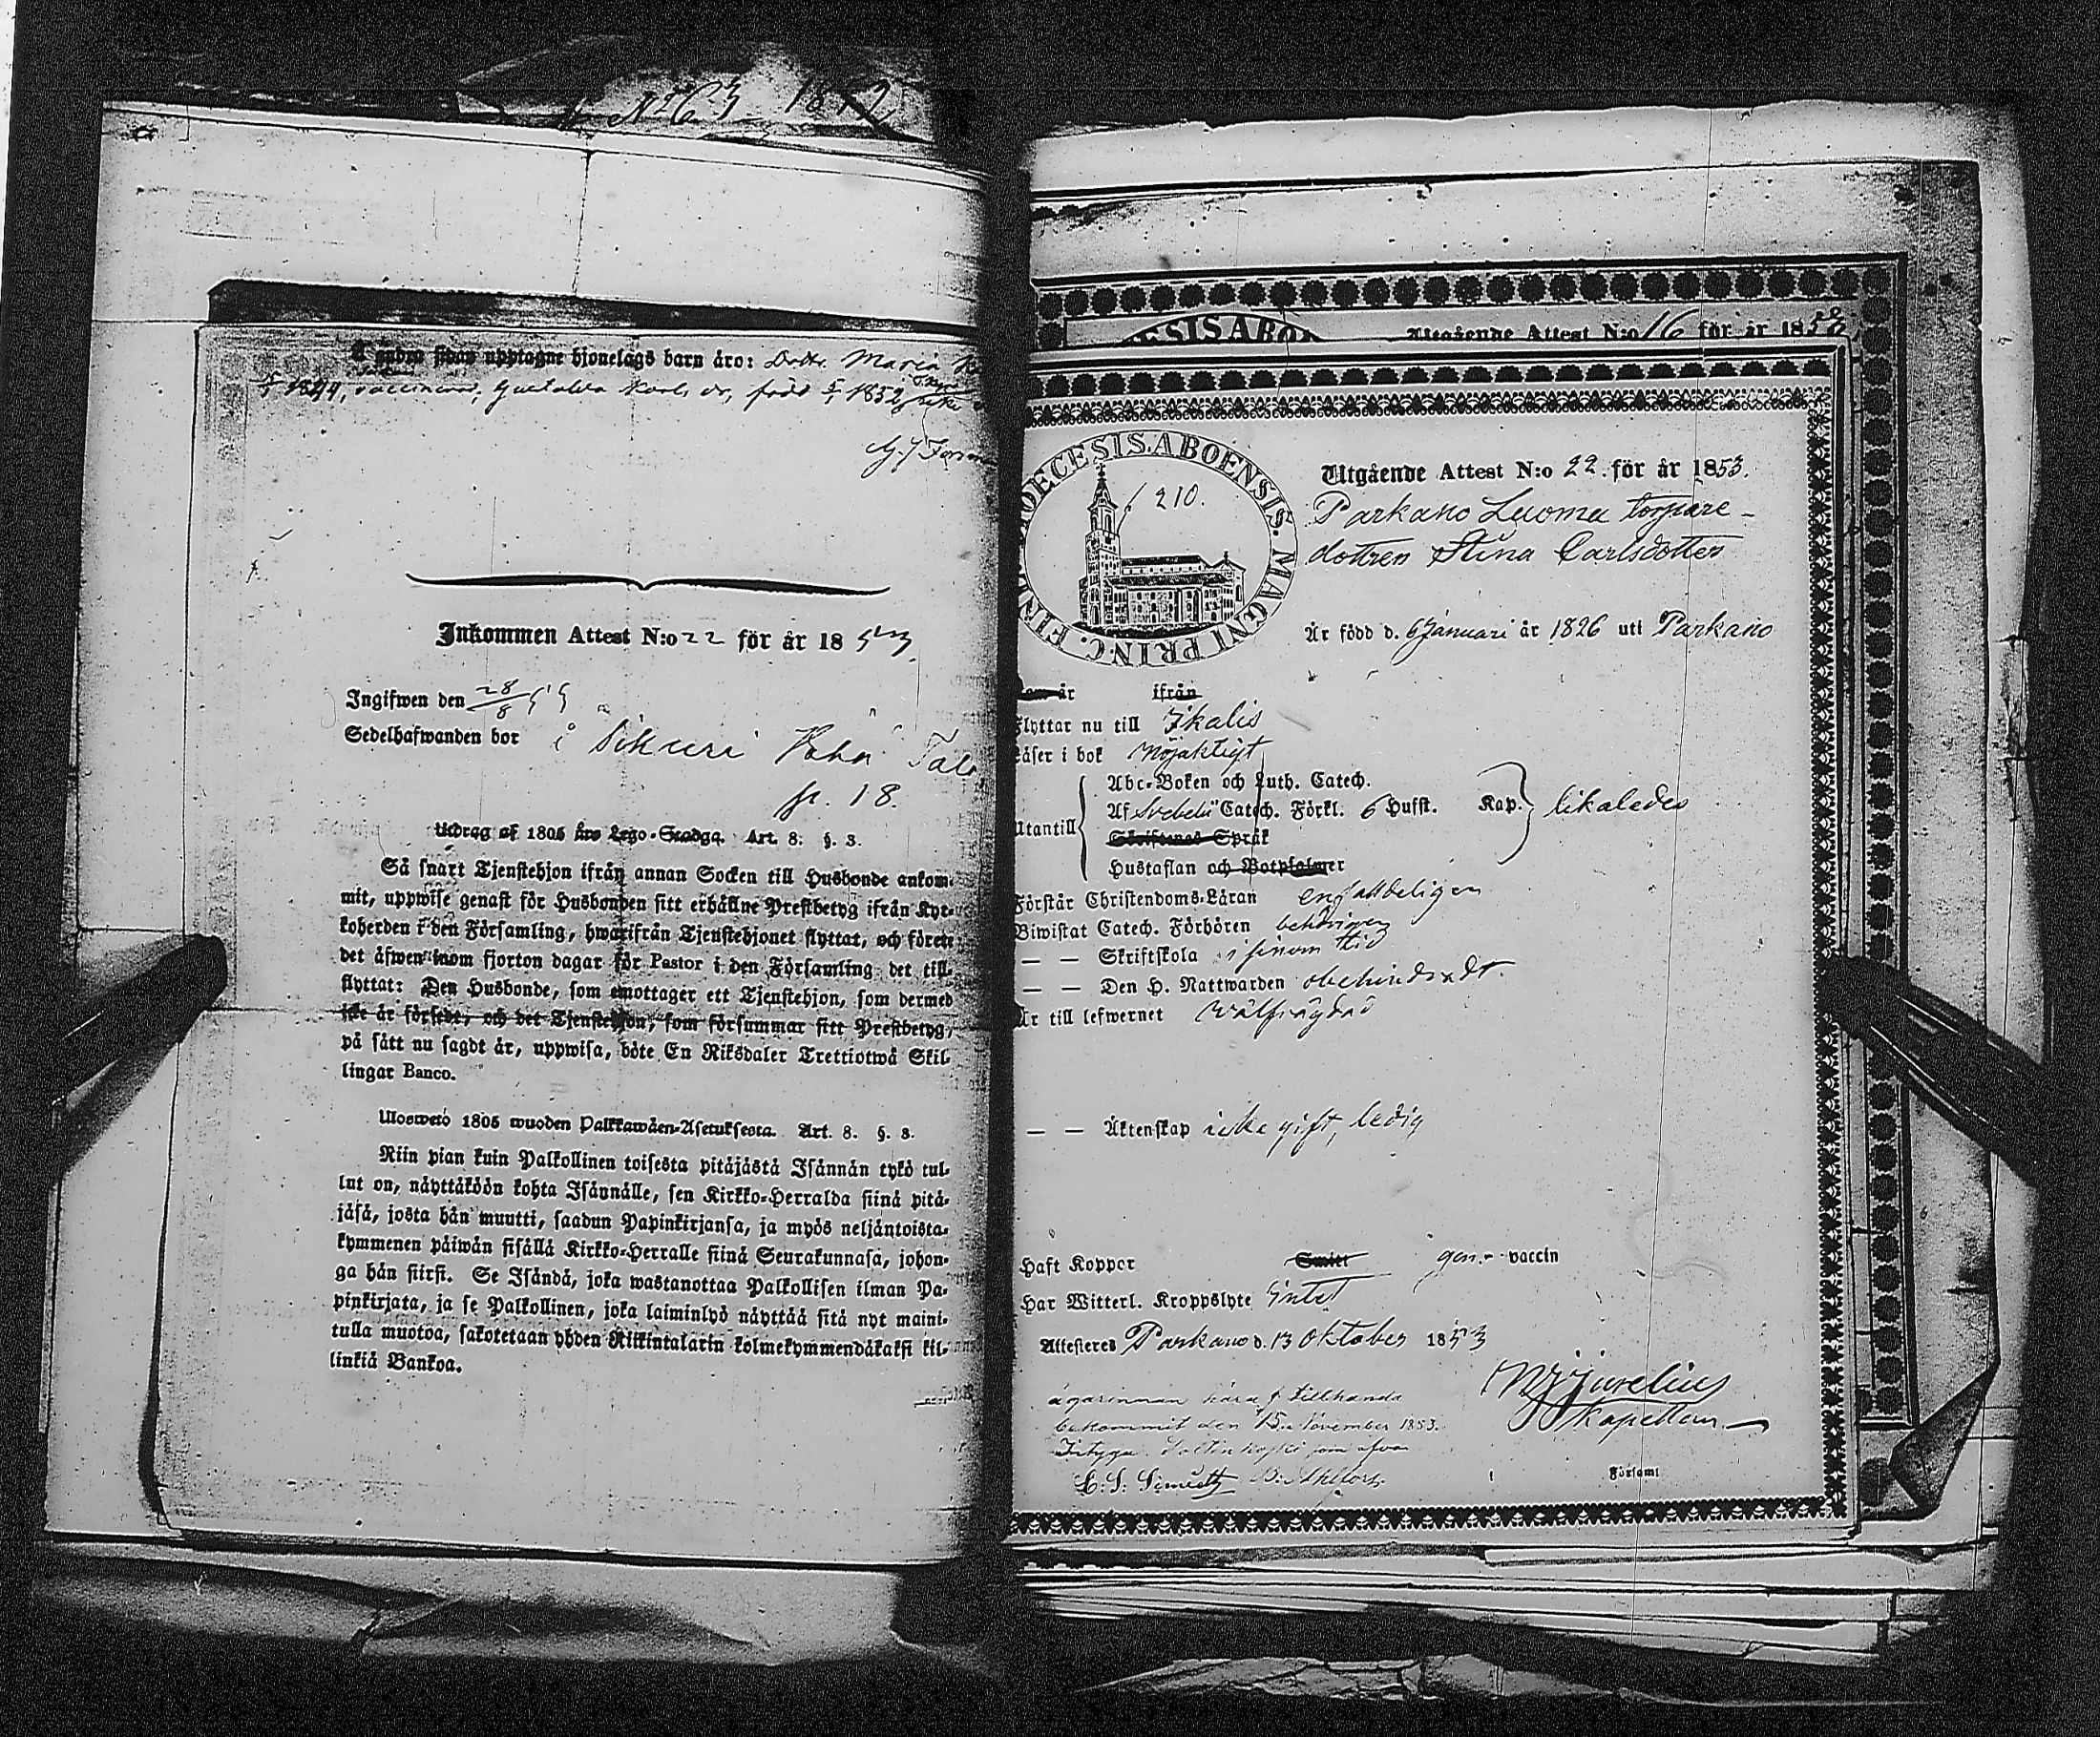 No 63 1812
å andra sidan upptagne hjonelags barn äro: Dottr. Maria
1844, vaccinerad, Gustafva Karls dr, född 1852
Inkommen Attest N:o 22 för år 1853.
Ingifwen den 28/8 55
Sedelhafwanden bor i Sikuri
p. 18.
Utdrag af 1805 års Lego-Stadga. Art. 8. §. 3.
Så snart Tjenstehjon ifrån annan Socken till Husbonde ankom-
mit, uppwise genast för Husbonden sitt erhållne Prestbetyg ifrån Kyr-
koherden i den Församling, hwarifrån Tjenstehjonet flyttat, och förete
det äfwen inom fjorton dagar för Pastor i den Församling det till-
flyttat: Den Husbonde, som emottager ett Tjenstehjon, som dermed
icke är försedt, och det Tjenstehjon, som försummar sitt Prestbetyg,
på sätt nu sagdt är, uppwisa, böte En Riksdaler Trettiotwå Skil-
lingar Banco.
Ulosweto 1805 wuoden Palkkawäen-Asetuksesta. Art. 8. §. 3.
Niin pian kuin Palkollinen toisesta pitäjästä Isännän tykö tul-
lut on, näyttäköön kohta Isännälle, sen Kirkko-Herralda siinä pitä-
jäsä, josta hän muutti, saadun Papinkirjansa, ja myös neljäntoista-
kymmenen päiwän sisällä Kirkko-Herralle siinä Seurakunnasa, johon-
ga hän siirsi. Se Isändä, joka wastanottaa Palkollisen ilman Pa-
pinkirjata, ja se Palkollinen, joka laiminlyö näyttää sitä nyt maini-
tulla muotoa, sakotetaan yhden Riikintalarin kolmekymmendäkaksi kil-
linkiä Bankoa.
ESIS ABO
Utgående Attest N:o 16 för år 1853
DIOECESIS. ABOENSIS. MAGNI PRINC. FINL
210.
Utgående Attest N:o 22. för år 1853.
Parkano Luoma torpare-
dottren Stina Carlsdotter
Är född d. 6 Januari år 1826 uti Parkano
år ifrån
Flyttar nu till Ikalis
Läser i bok Nöjaktigt
Utantill
Abc-Boken och Luth. Catech.
Af Svebelii Catech. Förkl. 6 Hufst. Kap. likaledes
Skriftenes Språk
Hustaflan och Botpsalmer
Förstår Christendoms-Läran enfaldeligen
Biwistat Catech. Förhören behörigen
— — Skriftskola i sinom tid
— — Den H. Nattwarden obehindradt.
Är till lefwernet wälfrägdad
— — Äktenskap icke gift, ledig
Haft Koppor Smitt gen. vaccin
Har Witterl. Kroppslyte Intet
Attesteres Parkano d. 13 Oktober 1853
Kapellan
ägarinnan tillhanda
bekommit den 15 November 1853.
Intyga
Församl